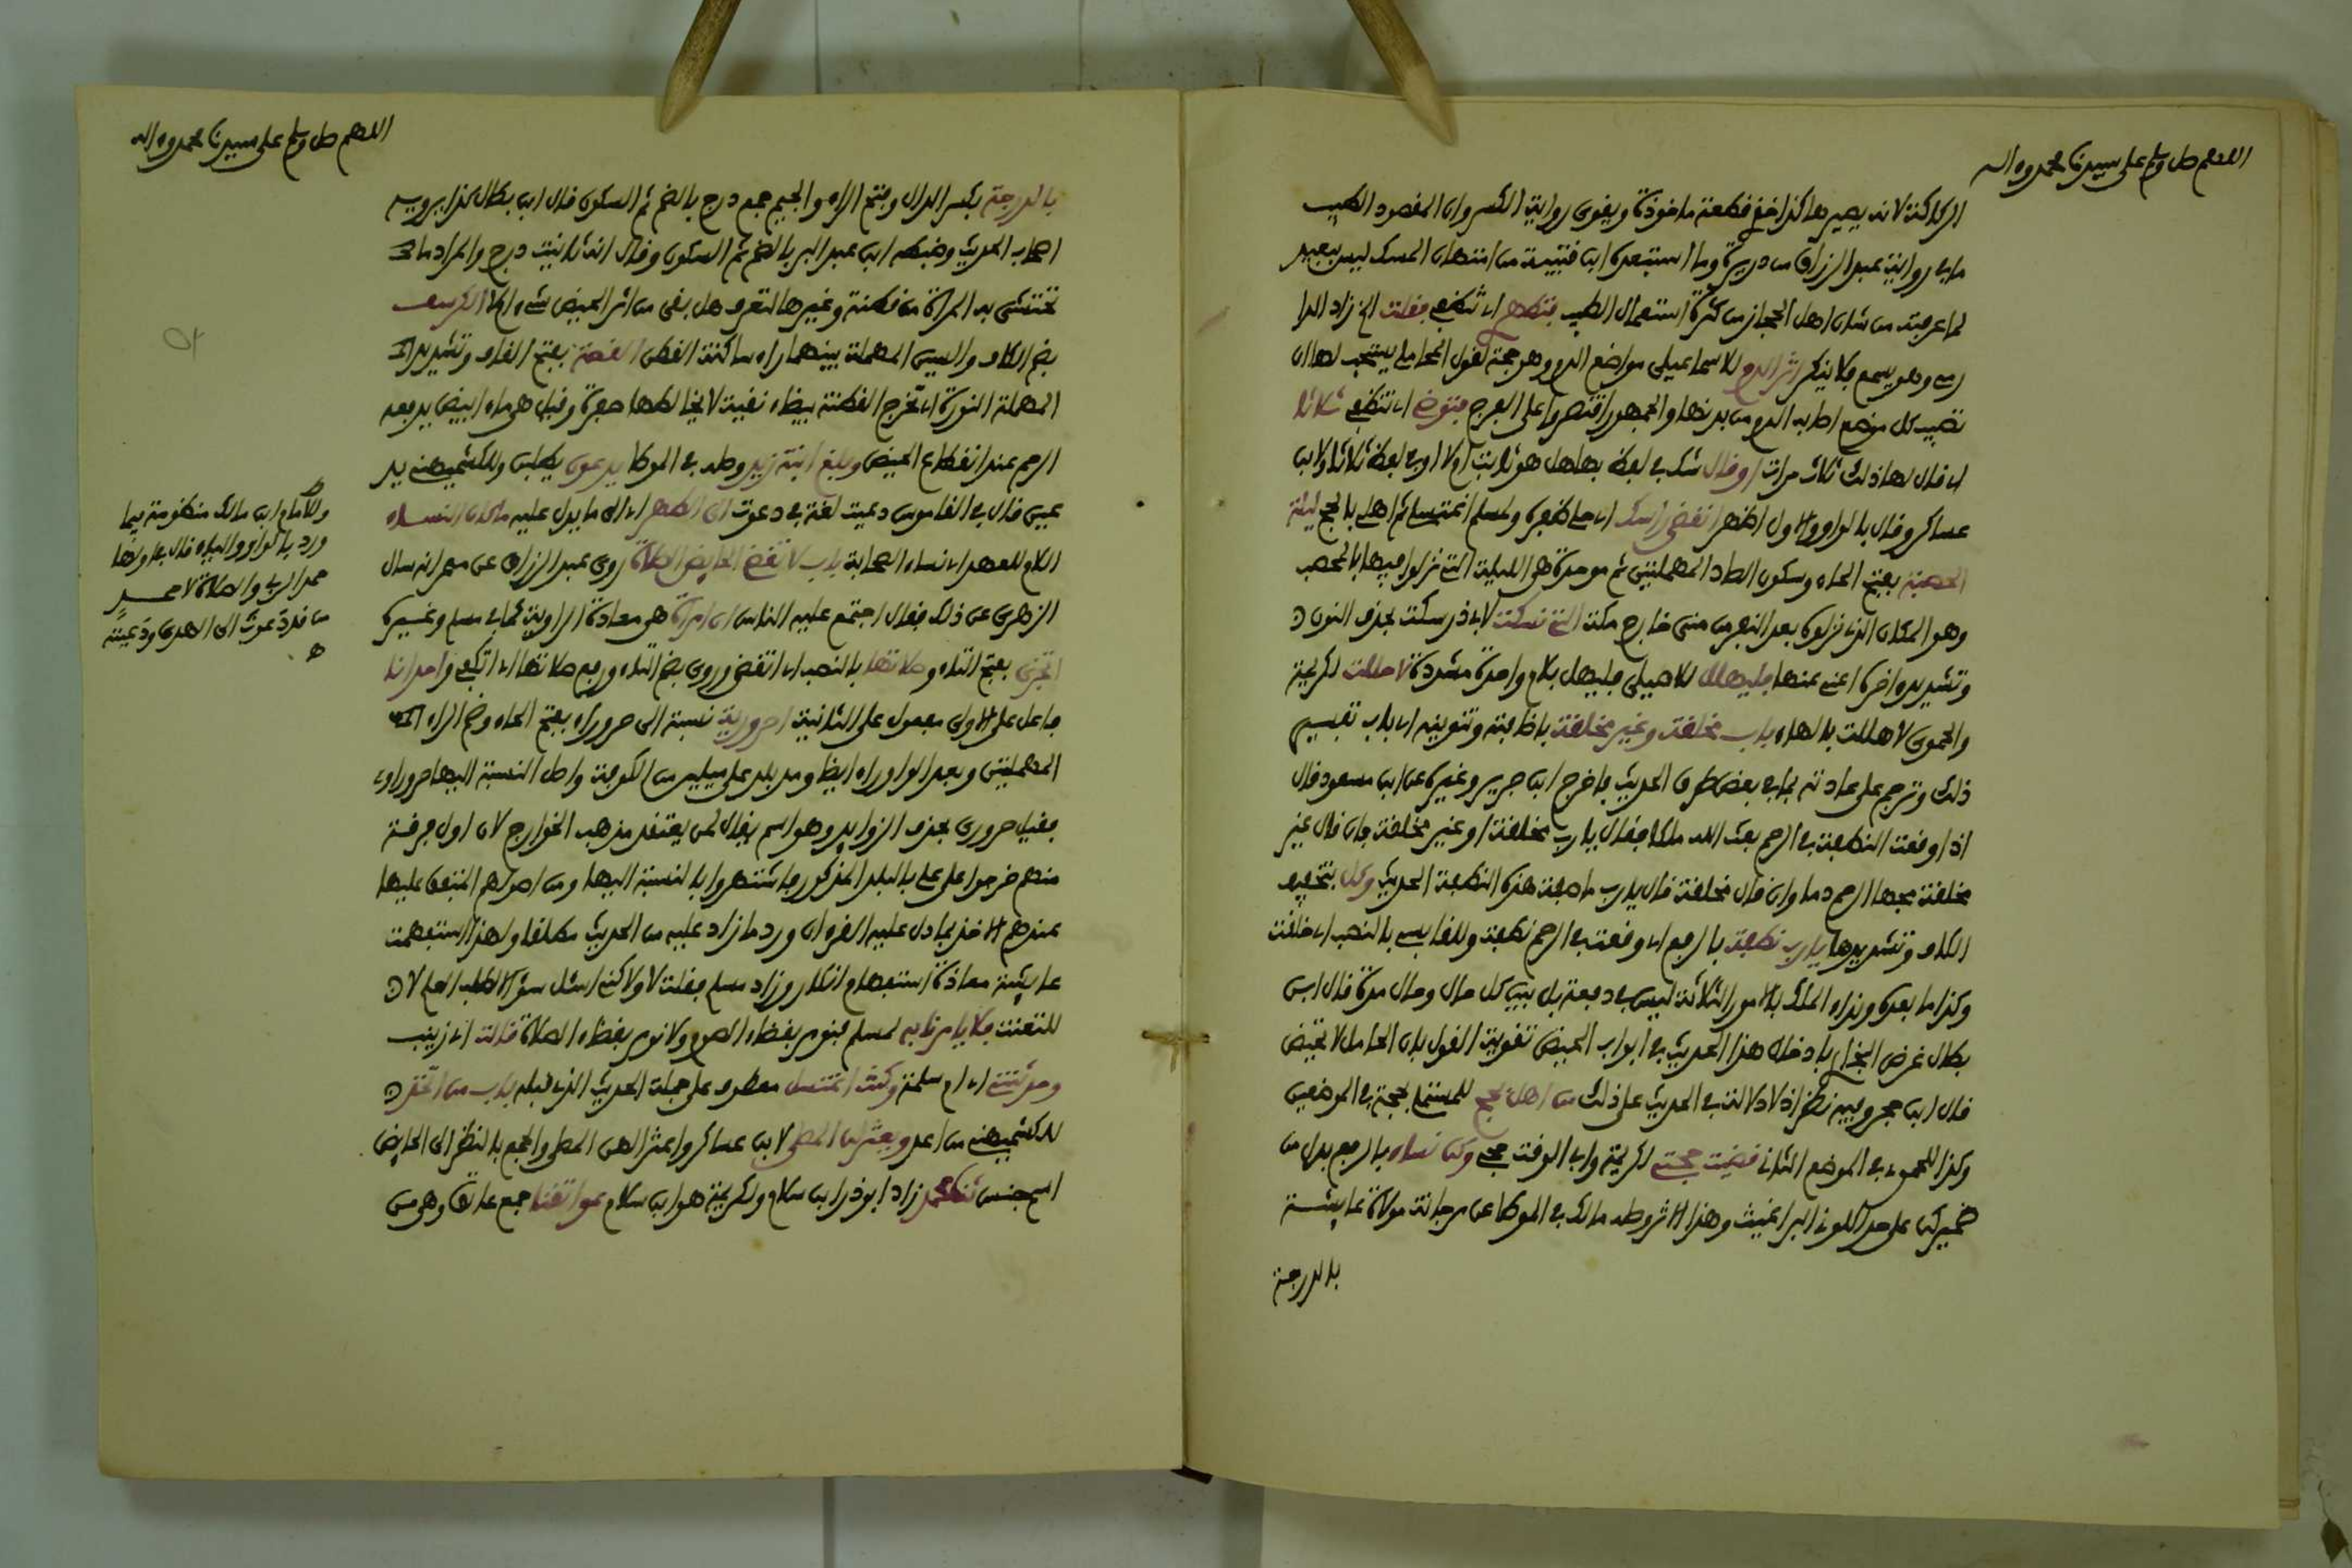 اللهم صل وسلم على سيدنا محمد وءاله
الركاكة لانه يصير هاكذا خذي قطعة ماخوذة ويقوي رواية الكسر وان المقصود الطيب
ما في رواية عبد الرزاق من ذريرة وما استبعده ابن قتيبة من امتهان المسك ليس ببعيد
لما عرفته من شان اهل الحجاز من كثرة استعمال الطيب فتطهري اي تنظفي فقلت الخ زاد الدا
رمي وهو يسمع فلا ينكر اثر الدم للاسماعيلي مواضع الدم وهو حجة لقول المحاملي يستحب لها ان
تطيب كل موضع اصابه الدم من بدنها والجمهور اقتصروا على الفرج فتوضي اي تنظفي ثلاثا
اي قال لها ذلك ثلاث مرات او قال شك في لفظة بها هل هو ثابت اولا او في لفظة ثلاثا ولابن
عساكر وقال بالواو والاول اظهر انقضي راسك اي حلي ظفره ولمسلم اغتسلي ثم اهلي بالحج ليلة
الحصبة بفتح الحاء وسكون الصاد المهملتين ثم موحدة هي الليلة التي نزلوا فيها بالمحصب
وهو المكان الذي نزلوه بعد النفر من منى خارج مكة التي نسكت لابي ذر سكت بحذف النون
وتشديد ءاخره اعني عنها فليهلل للاصيلي فليهل بلام واحدة مشددة لاحللت لكريمة
والحموي لاهللت بالهاء باب مخلقة وغير مخلقة باضافته وتنوينه اي باب تفسير
ذلك وترجم على عادته بما في بعض طرق الحديث فاخرج ابن جرير وغيره عن ابن مسعود قال
اذا وقعت النطفة في الرحم بعث الله ملكا فقال يا رب مخلقة او غير مخلقة فان قال غير
مخلقة مجها الرحم دما وان قال مخلقة قال يا رب ما صفة هذه النطفة الحديث وكل بتخفيف
الكاف وتشديدها يا رب نطفة بالرفع اي وقعت في الرحم نطفة وللقابسي بالنصب اي خلقت
وكذا ما بعده ونداء الملك بالامور الثلاثة ليس في دفعة بل بين كل حال وحال مدة قال ابن
بطال غرض البخاري بادخال هذا الحديث في ابواب الحيض تقوية القول بان الحامل لا تحيض
قال ابن حجر وفيه نظر اذ لا دلالة في الحديث على ذلك من اهل بحج للمستملي بحجة في الموضعين
وكذا للحموي في الموضع الثاني قضيت حجتي لكريمة وابي الوقت حجي وكن نساء بالرفع بدل من
ضمير كن على حد اكلوني البراغيث وهذا الاثر وصله مالك في الموطا عن مرجانة مولاة عائشة
بالدرجة
اللهم صل وسلم على سيدنا محمد وءاله
بالدرجة بكسر الدال وفتح الراء والجيم جمع درج بالضم ثم السكون قال ابن بطال كذا يرويه
اصحاب الحديث وضبطه ابن عبد البر بالضم ثم السكون وقال انه تانيث درج والمراد ما
تحتشي به المراة من قطنة وغيرها لتعرف هل بقي من اثر الحيض شيء ام لا الكرسف
بضم الكاف والسين المهملة بينهما راء ساكنة القطن القصة بفتح القاف وتشديد
المهملة النورة اي تخرج القطنة بيضاء نقية لا يخالطها صفرة وقيل هي ماء ابيض يدفعه
الرحم عند انقطاع الحيض وبلغ ابنة زيد وصله في الموطا يدعون يطلبن وللكشميهني يد
عين قال في القاموس دعيت لغة في دعوت الى الطهر اي الى ما يدل عليه ما كان النساء
اللام للعهد اي نساء الصحابة باب لا تقضي الحائض الصلاة روى عبد الرزاق عن معمر انه سال
الزهري عن ذلك فقال اجتمع عليه الناس ان امراة هي معاذة الراوية كما في مسلم وغيره
اتجزي بفتح التاء وصلاتها بالنصب اي اتقضي وروي بضم التاء ورفع صلاتها اي اتكفي واحدانا
فاعل على الاولى مفعول على الثانية احرورية نسبة الى حروراء بفتح الحاء وضم الراء
المهملتين وبعد الواو راء ايضا ومد بلد على ميلين من الكوفة واصل النسبة اليها حروراوي
فقيل حروري بحذف الزوايد وهو اسم يقال لمن يعتقد مذهب الخوارج لان اول فرقة
منهم خرجوا على علي بالبلد المذكور فاشتهروا بالنسبة اليها ومن اصولهم المتفق عليها
عندهم الاخذ بما دل عليه القرءان ورد ما زاد عليه من الحديث مطلقا ولهذا استفهمت
عايشة معاذة استفهام انكار وزاد مسلم فقلت لا ولاكني اسئل سؤالا لطلب العلم لا
للتعنت فلا يامرنا به لمسلم فنومر بقضاء الصوم ولا نومر بقضاء الصلاة قالت اي زينب
وحدثتني اي ام سلمة وكنت اغتسل معطوف على جملة الحديث الذي قبله باب من اتخذ
للكشميهني من اعد ويعتزلن المصلى لابن عساكر واعتزالهن المصلى والجمع بالنظر الى الحايض
اسم جنس زاد ابو ذر ابن سلام ولكريمة هو ابن سلام عواتقنا جمع عاتق وهي من
وللامام ابن مالك منظومة فيما
ورد بالواو والياء قال في اولها
حمد الربي والصلاة لاحمد
من قد دعوت الى الهدى ودعيته